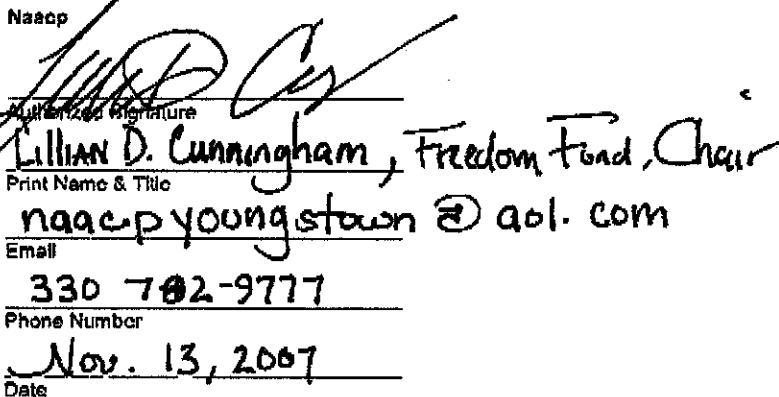 Naacp
Authorized Signature
Lillian D. Cunningham, Freedom Fund, Chair
Print Name & Title
naacpyoungstown@aol.com
Email
330 782-9777
Phone Number
Nov. 13, 2007
Date